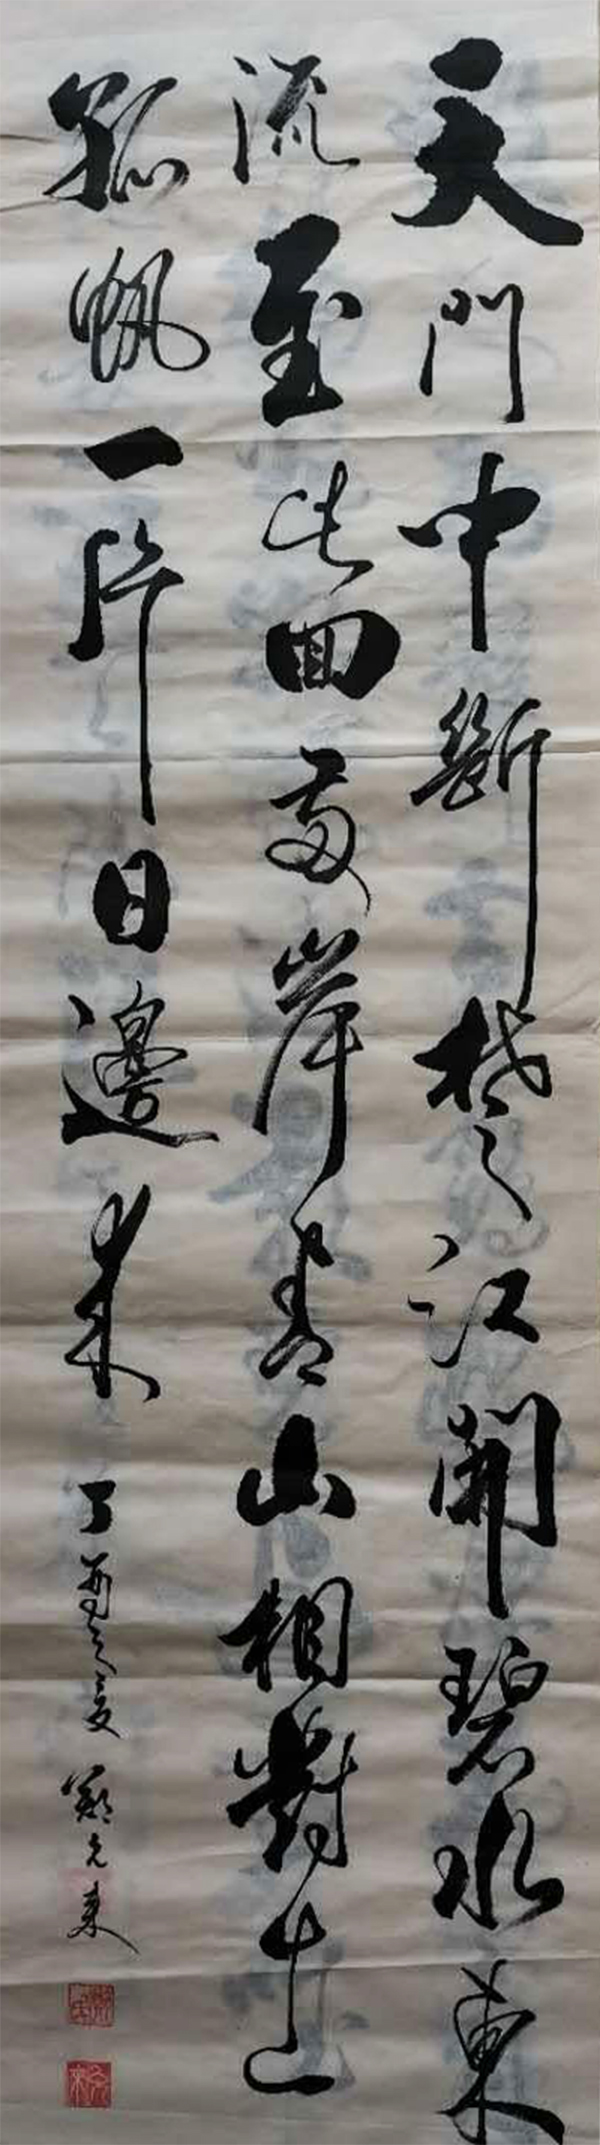 天門中斷楚江開碧水東
流至此回兩岸青山相對出
孤帆一片日邊來
丁酉之夏 鄭元來